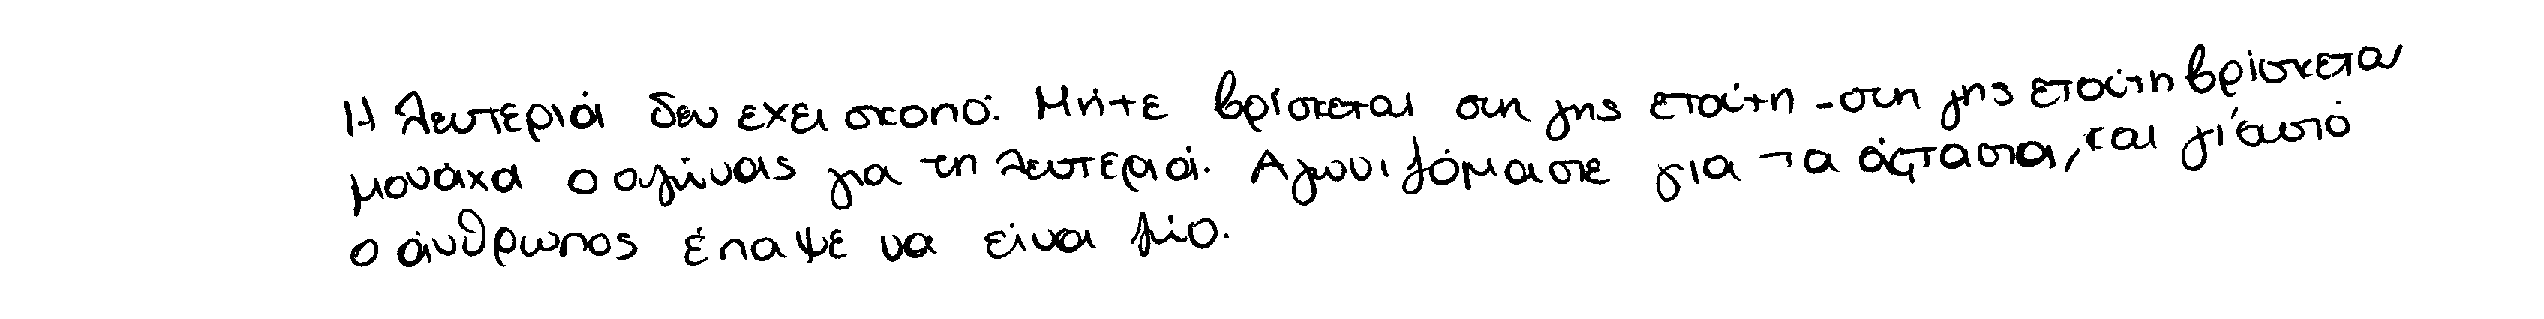 Η λευτεριά δεν έχει σκοπό. Μήτε βρίσκεται στη γης ετούτη - στη γης ετούτη βρίσκεται
μονάχα ο αγώνας για τη λευτεριά. Αγωνιζόμαστε για τα άφταστα, και γι'αυτό
ο άνθρωπος έπαψε να είναι ζώο.